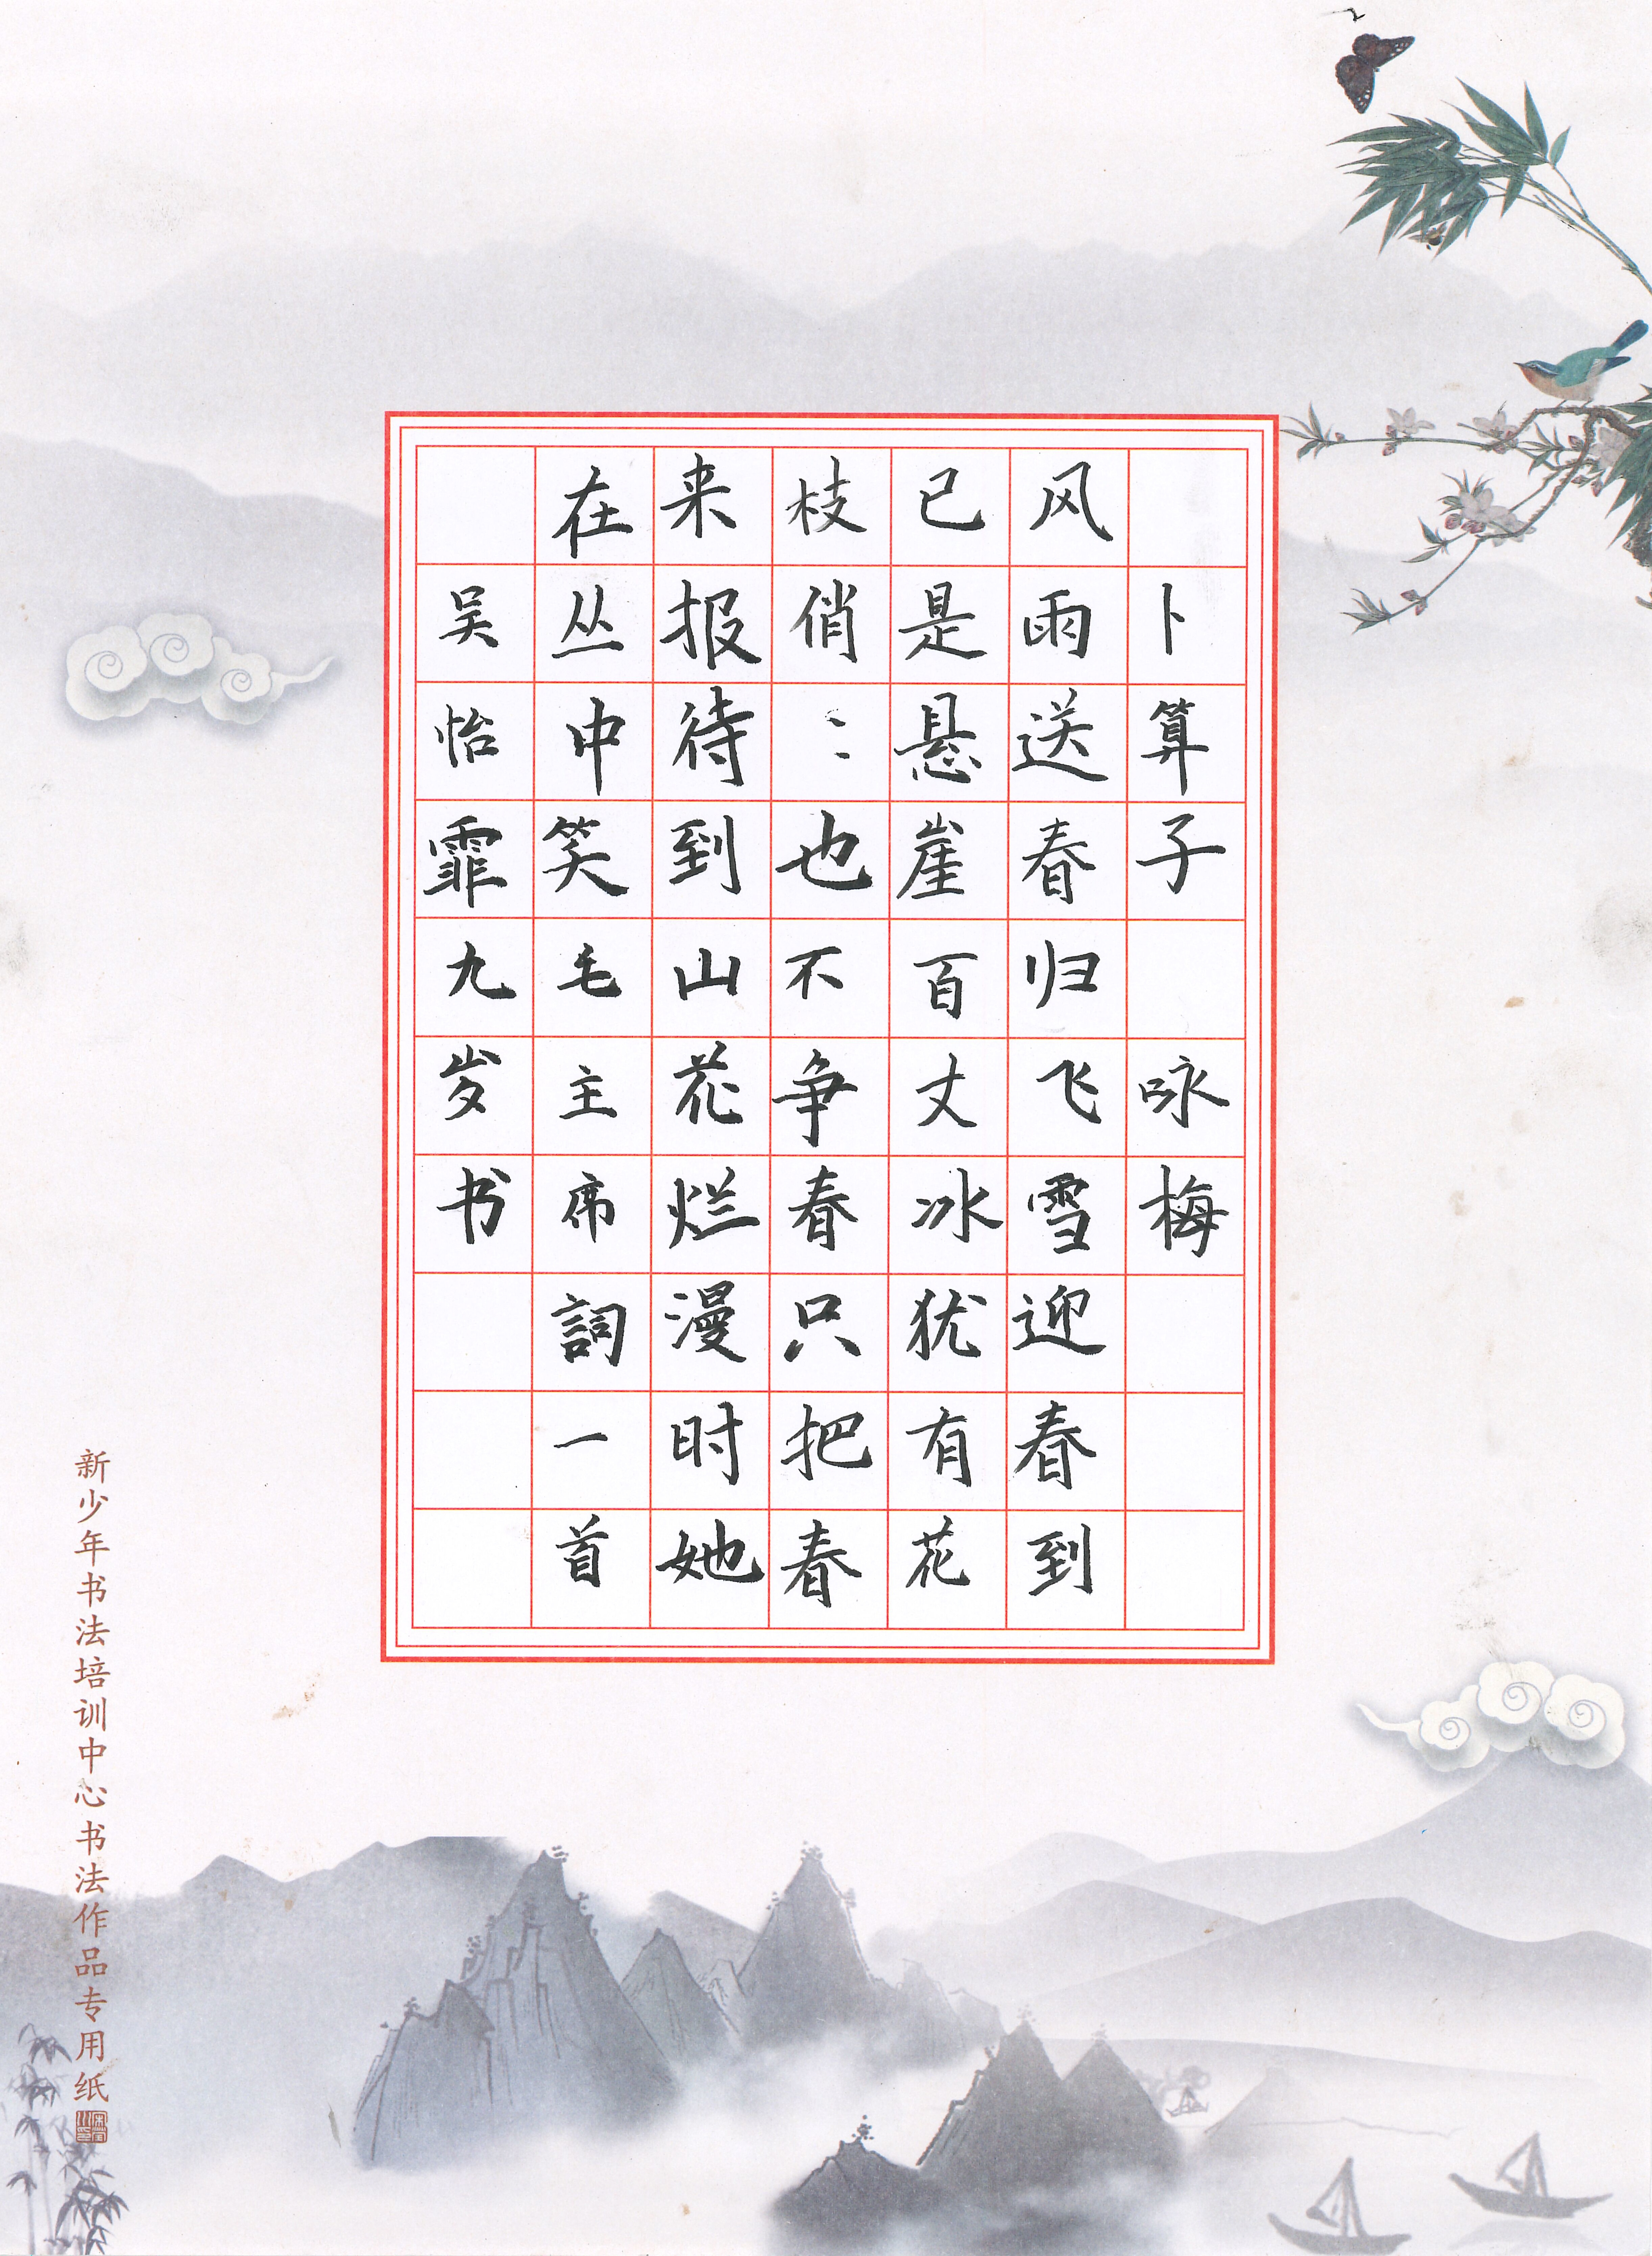 卜算子 咏梅
风雨送春归飞雪迎春到
已是悬崖百丈冰犹有花
枝俏：也不争春只把春
来报待到山花烂漫时她
在丛中笑毛主席詞一首
吴怡霏九岁书
新少年书法培训中心书法作品专用纸